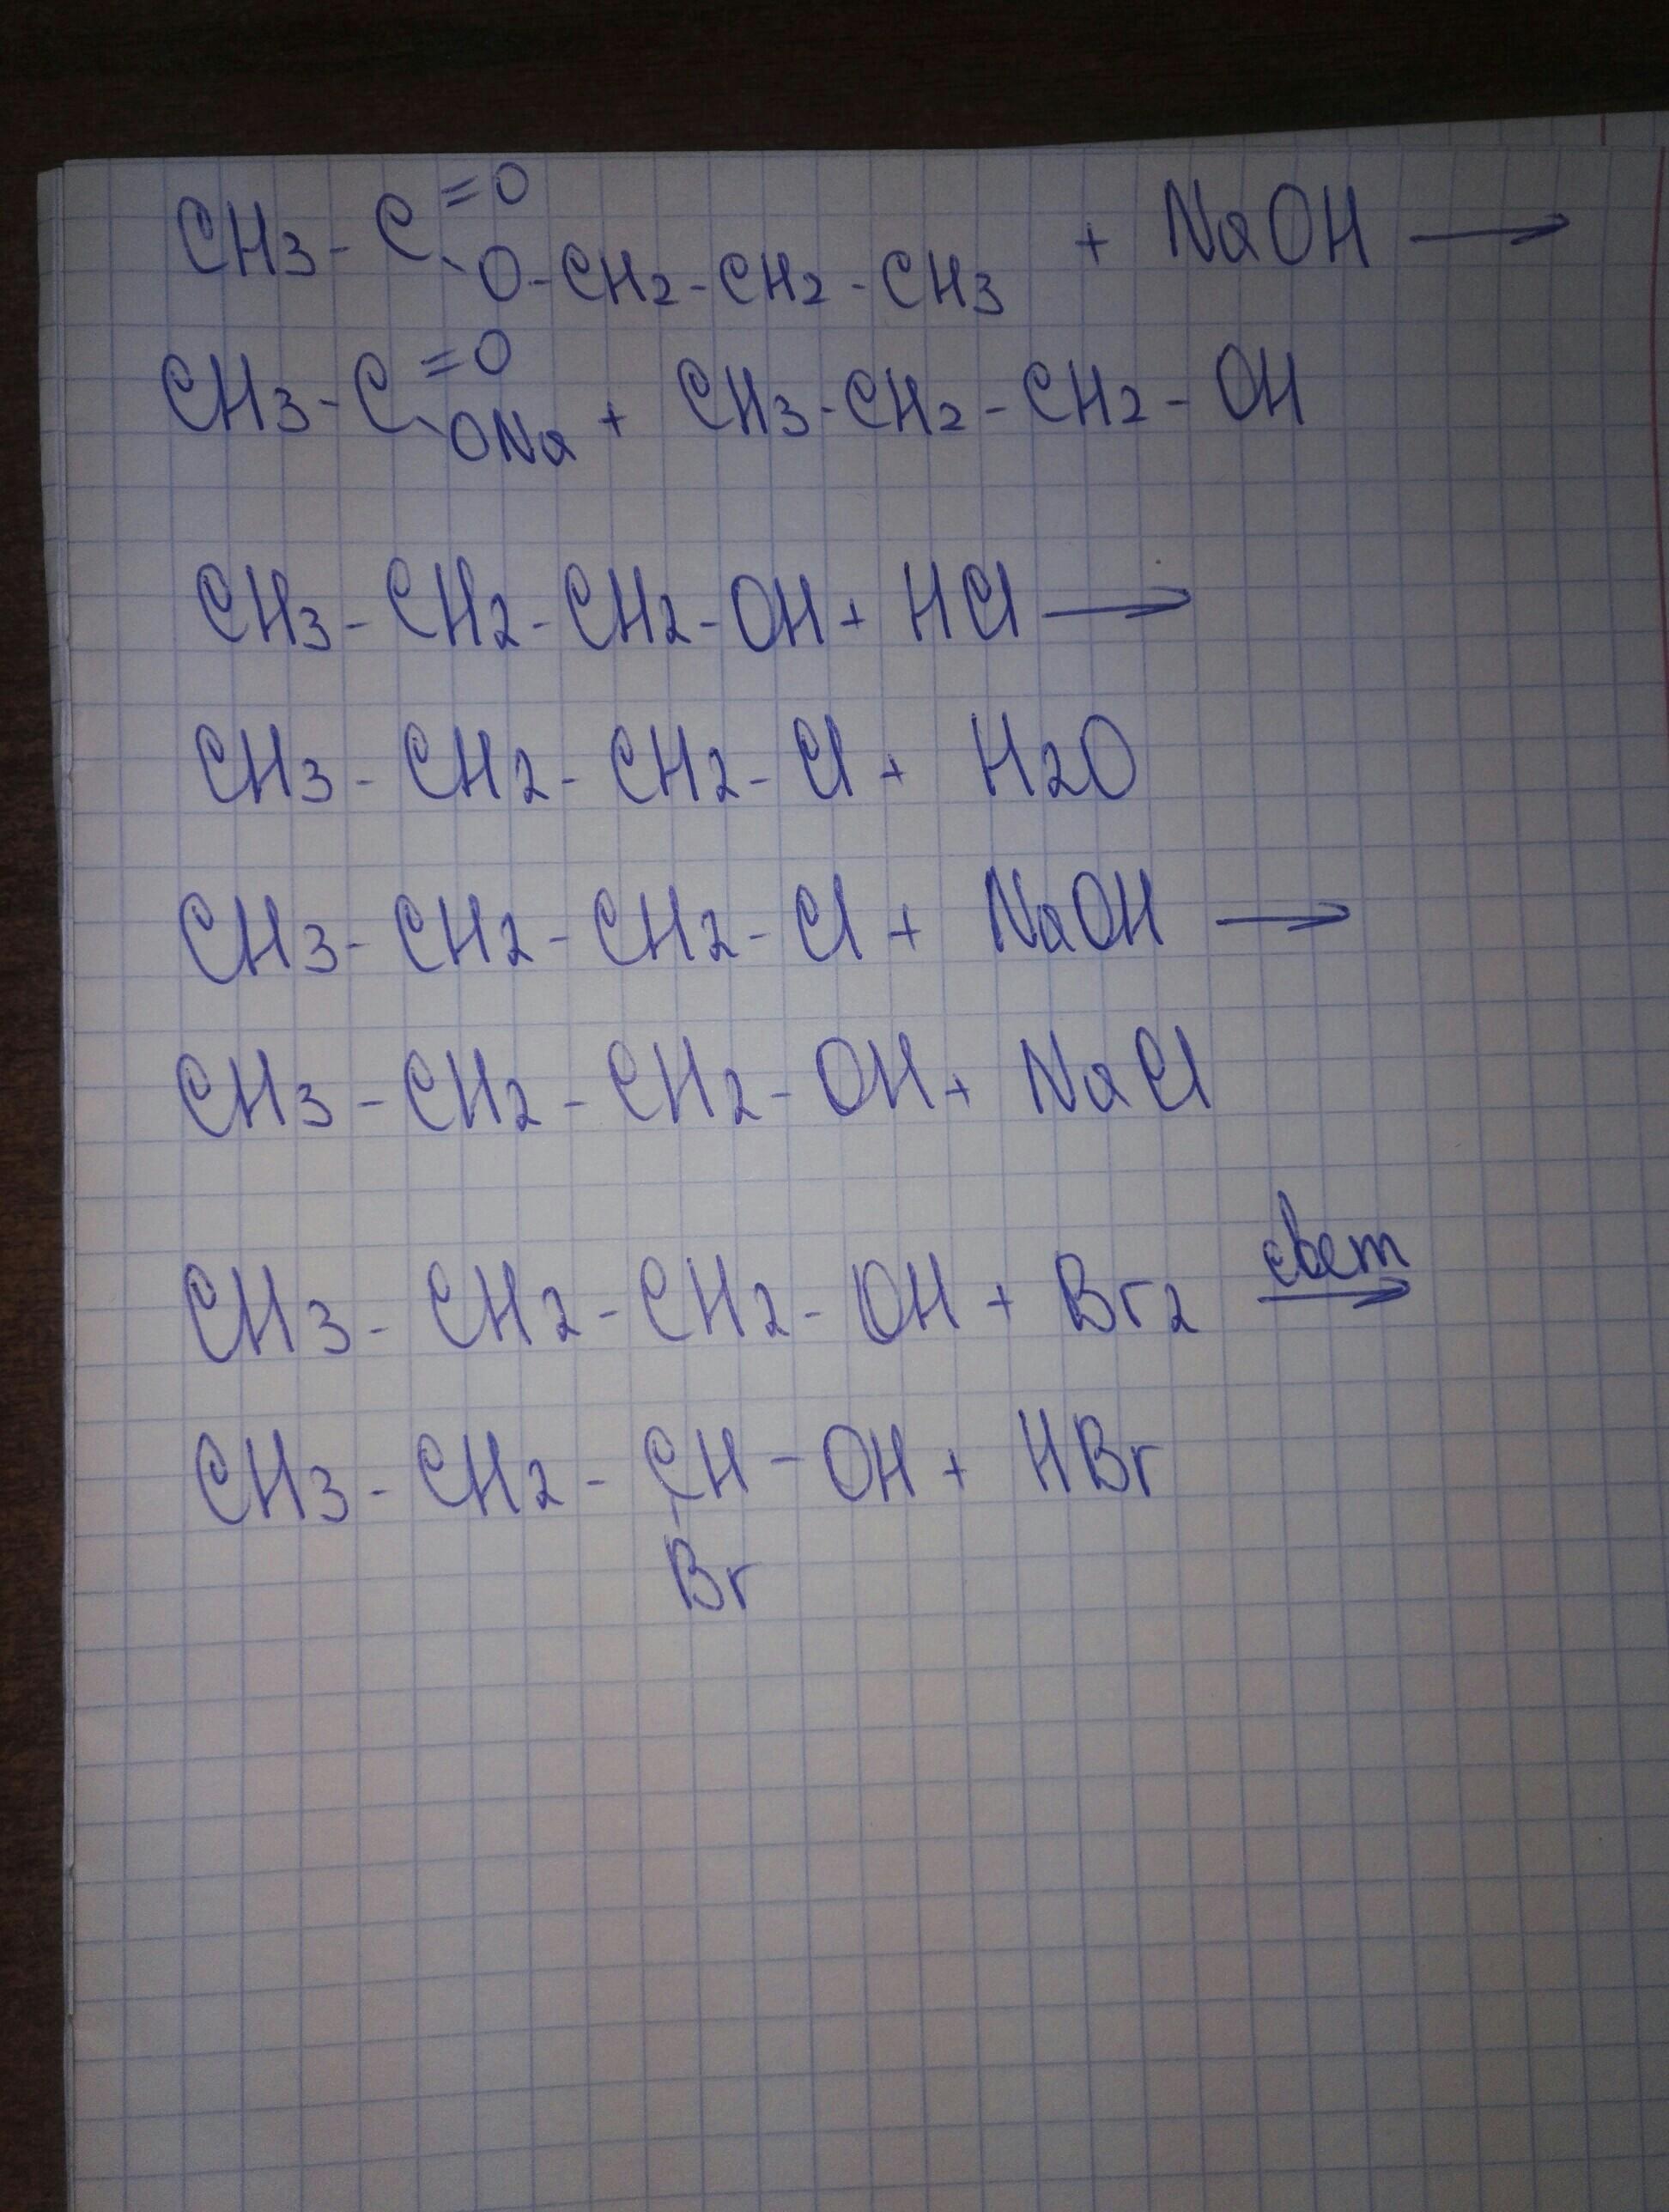 CH3 - C =O - O - CH2 - CH2 - CH3 + NaOH →
CH3 - C =O - ONa + CH3 - CH2 - CH2 - OH
CH3 - CH2 - CH2 - OH + HCl →
CH3 - CH2 - CH2 - Cl + H2O
CH3 - CH2 - CH2 - Cl + NaOH →
CH3 - CH2 - CH2 - OH + NaCl
свет
CH3 - CH2 - CH2 - OH + Br2 →
CH3 - CH2 - CH - OH + HBr
Br